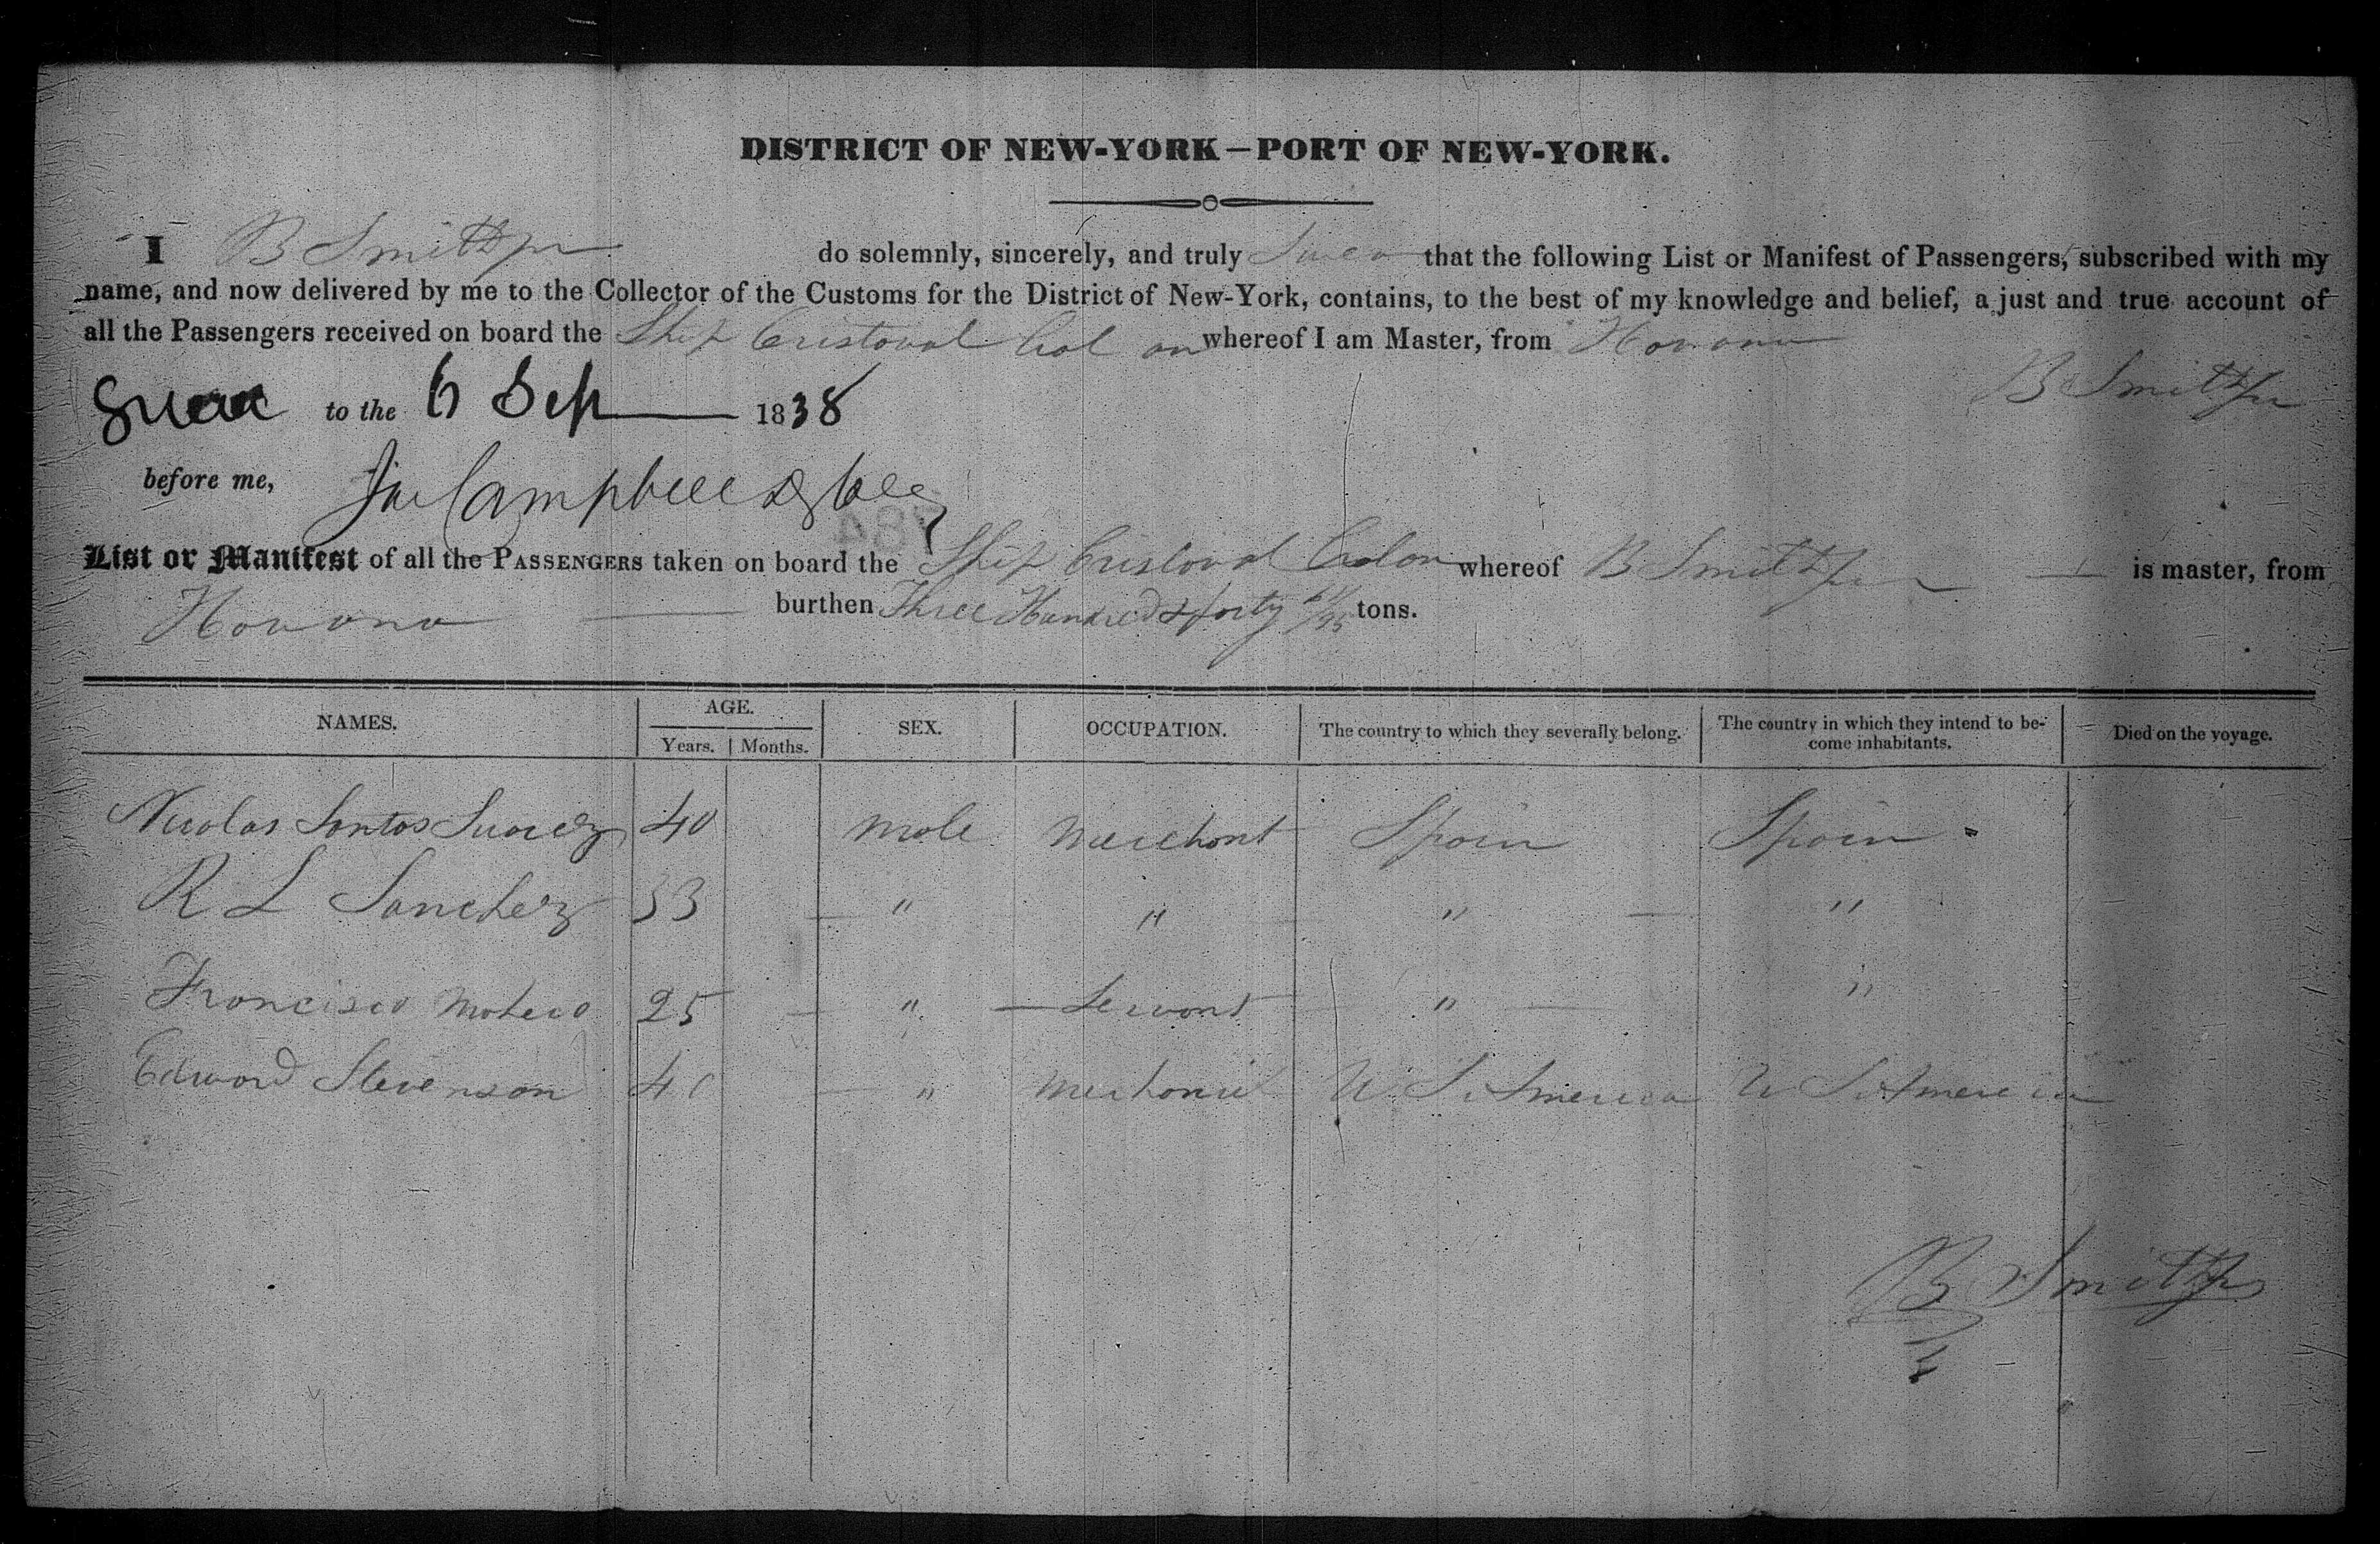 DISTRICT OF NEW-YORK—PORT OF NEW-YORK.
I B Smith jr do solemnly, sincerely, and truly Swear that the following List or Manifest of Passengers, subscribed with my
name, and now delivered by me to the Collector of the Customs for the District of New-York, contains, to the best of my knowledge and belief, a just and true account of
all the Passengers received on board the Ship Cristoval Colon whereof I am Master, from Havana
B Smith jr
to the 6 Sep 1838
before me, Campbell
List or Manifest of all the PASSENGERS taken on board the Ship Cristoval Colon whereof B Smith jr is master, from
Havana burthen Three Hundred & forty /95 tons.
NAMES. AGE. Years. Months. SEX. OCCUPATION. The country to which they severally belong. The country in which they intend to become inhabitants. Died on the voyage.
Nicolas Santos Suarez 40 Male Merchant Spain Spain
R L Sanchez 33 " " " "
Francisco 25 " Servant " "
Edward Stevenson 40 " Mechanic U S America U S America
B Smith jr